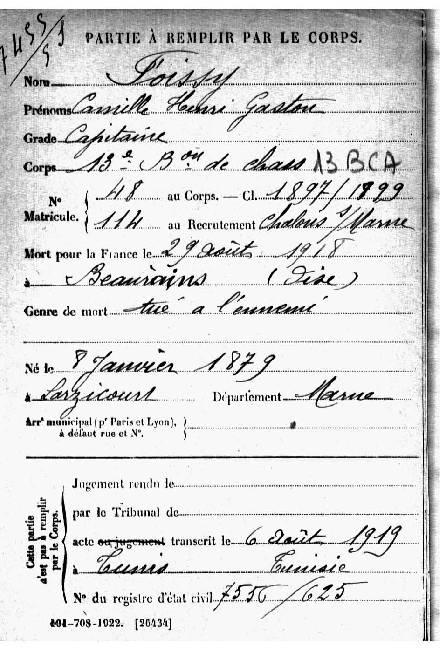 7455/53
PARTIE À REMPLIR PAR LE CORPS.
Nom Foissy
Prénoms Camille Henri Gaston
Grade Capitaine
Corps 13e Bon de chass 13 BCA
N° Matricule. { 48 au Corps. — Cl. 1897/1899
114 au Recrutement Chalons s/Marne
Mort pour la France le 29 août 1918
à Beaurains (Oise)
Genre de mort tué a l'ennemi
Né le 8 Janvier 1879
à Larzicourt Département Marne
Arrt municipal (pr Paris et Lyon),
à défaut rue et N°.
Cette partie n'est pas à remplir par le Corps.
Jugement rendu le
par le Tribunal de
acte ou jugement transcrit le 6 août 1919
à Tunis Tunisie
N° du registre d'état civil 7556/625
101-708-1922. [26434]